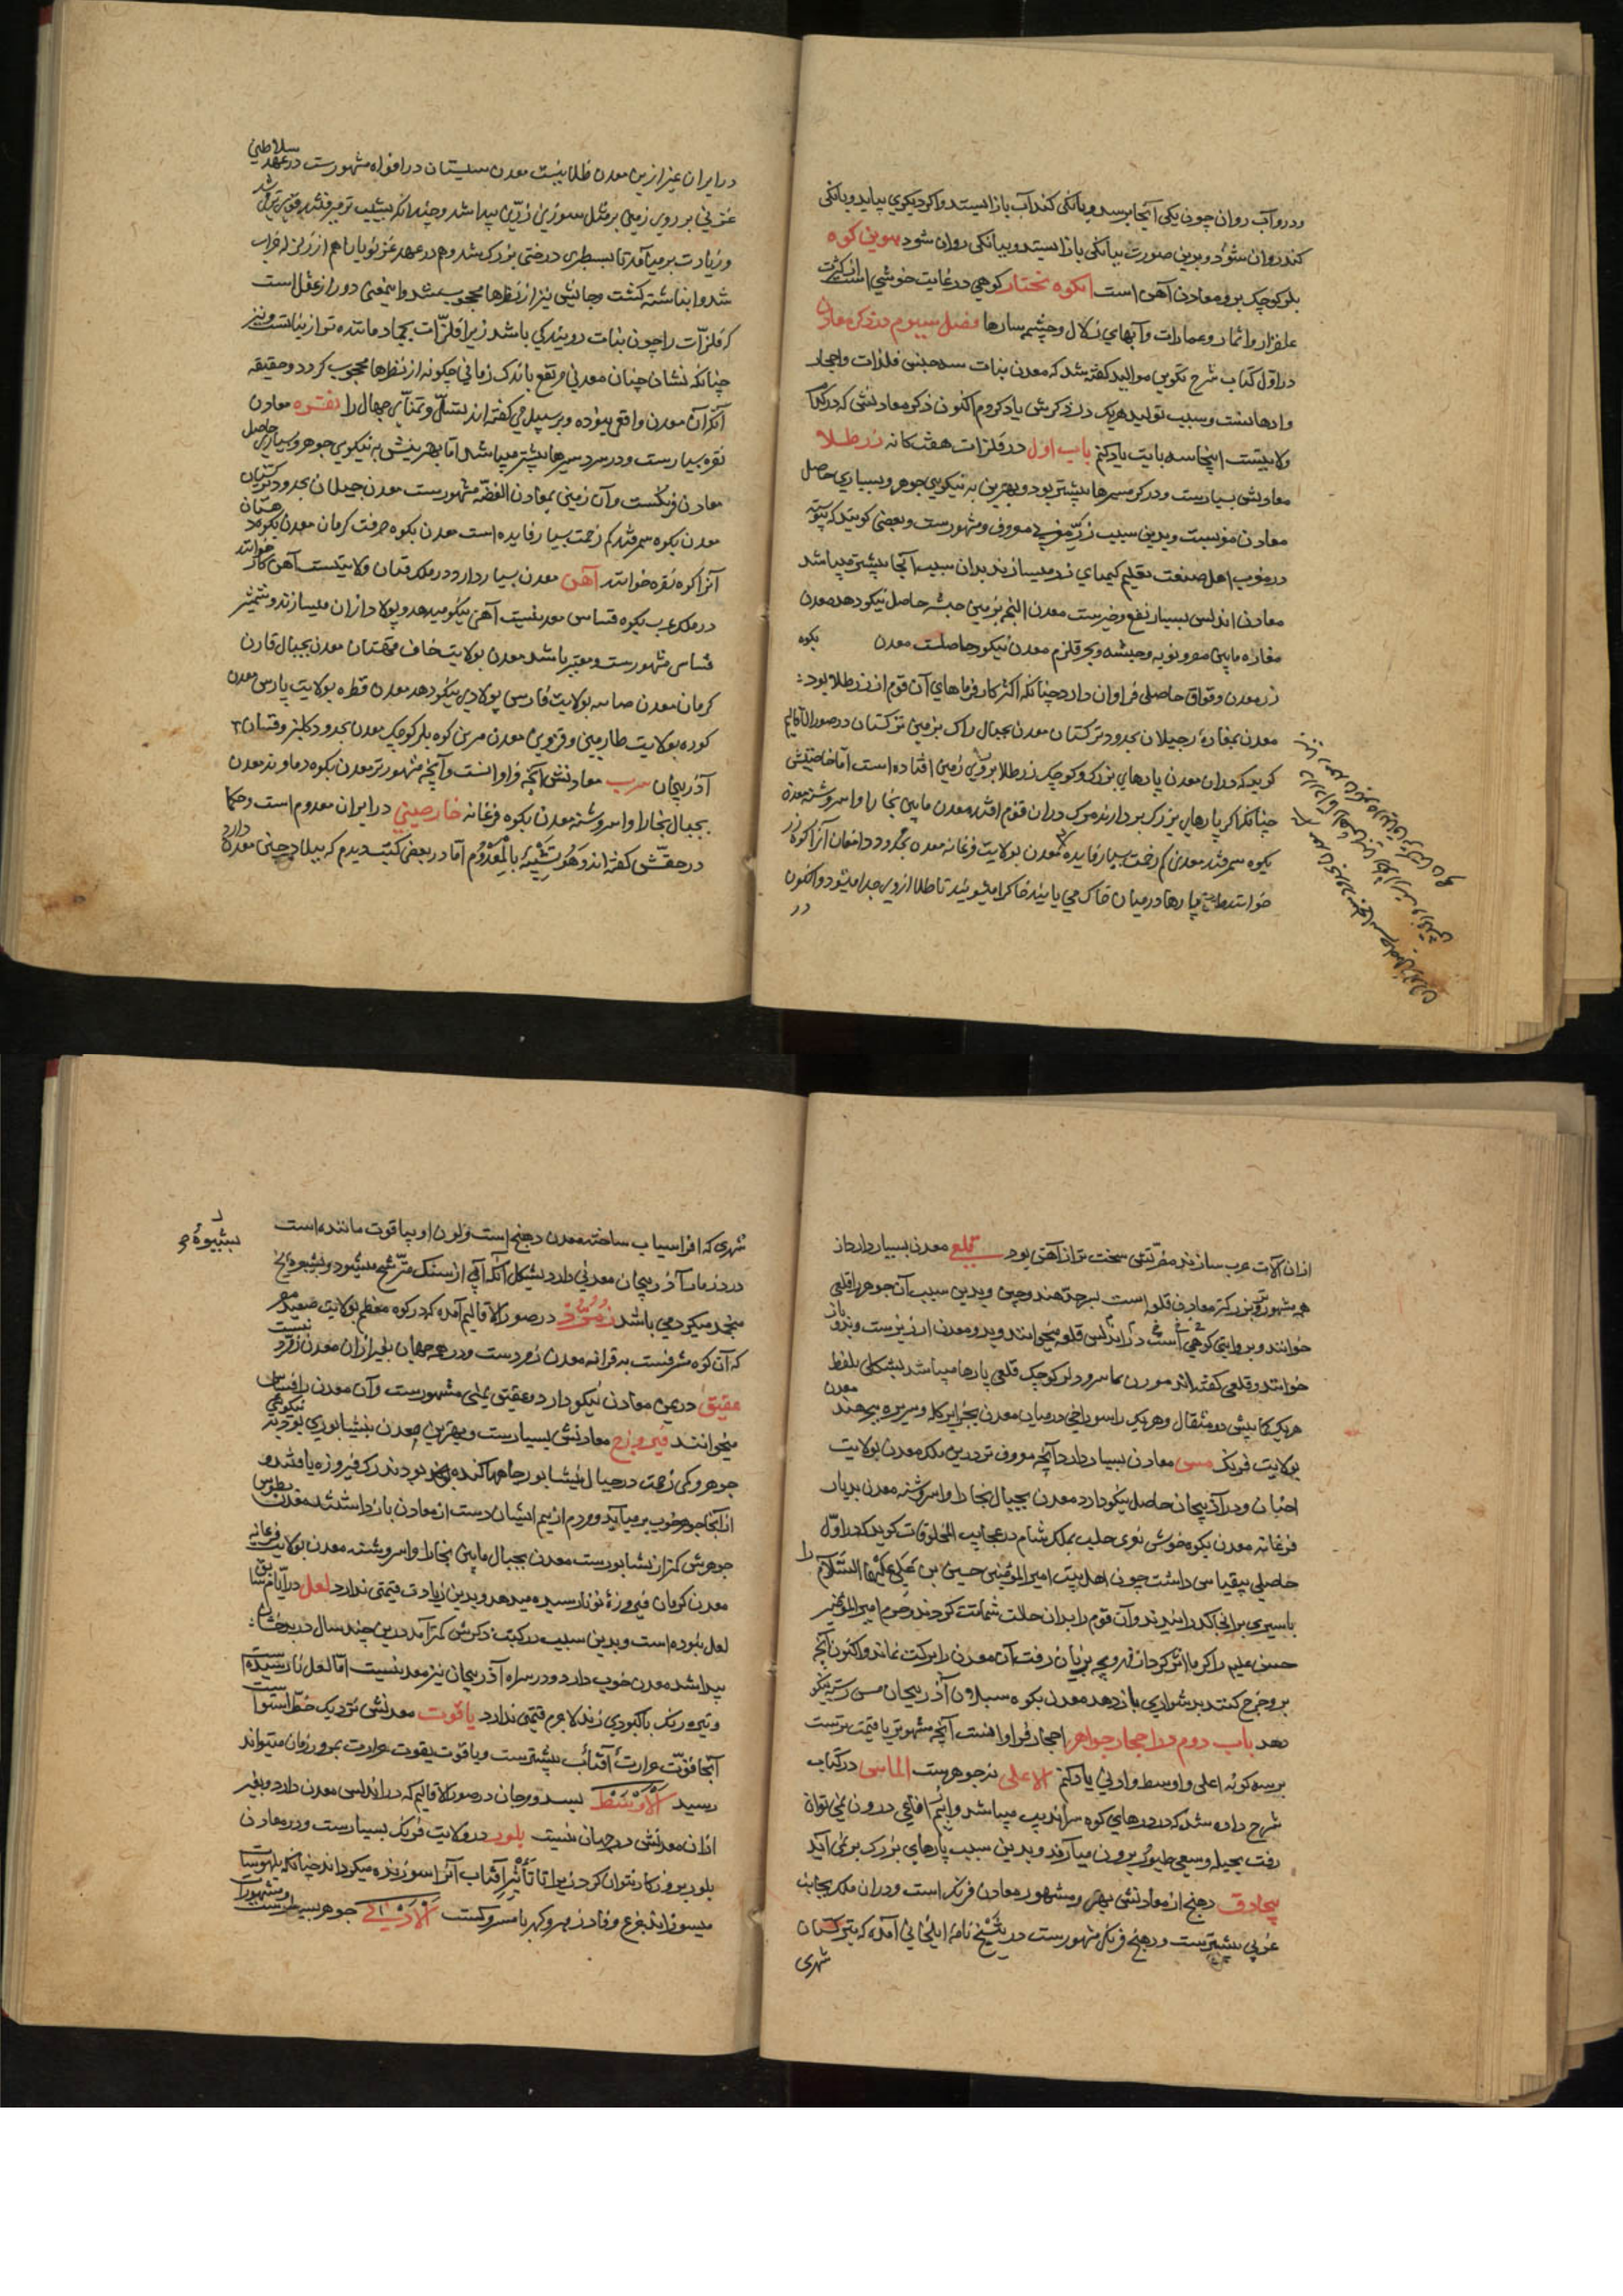 ودرو آب روان چون یکی آنجا برسد و بانکی کند آب باز ایستد واکر دیکری بیاید و بانکی
کند روان شود و برین صورت ببانکی باز ایستد و ببانکی روان شود کوه
بلر کوچک برو معادن آهن است کوه کوهی در غایت خوشی است از کثرت
علفزار و اثمار و عمارات و آبهای زلال و چشمه سارها فصل سیوم در ذکر معادن
در اول کتاب شرح تکوین موالید کفته شد که معدن نبات سه جنس فلزات و احجار
و ادهانست و سبب تولید هریک در ذکرش یاد کردم اکنون ذکر معادنش که در کدام
ولایتست اینجا سه بابت یاد کنم باب اول در فلزات هفت کانه زر طلا
معادنش بسیارست و در کرمسیرها بیشتر بود و بهترین به نیکویی جوهر و بسیاری حاصل
معادن مغربست و بدین سبب زر مغربی معروف و مشهورست و بعضی کویند که
در مغرب اهل صنعت بتعلیم کیمیای زر میسازند بدان سبب آنجا بیشتر میباشد
معادن اندلس بسیار نفع و خیرست معدن بزمین حبشه حاصل نیکو دهد معدن
مغاره مابین مصر و نوبه و حبشه و بحر قلزم معدن نیکو حاصلست معدن بکوه
زر معدن وقواق حاصلی فراوان دارد چنانکه اکثر کارفرماهای آن قوم از زر طلا بود
معدن بمغاره جیلان بحدود ترکستان معدن بجبال راک بزمین ترکستان در صور الاقالیم
کوید که در آن معدن پارهای بزرک و کوچک زر طلا بر روی زمین افتاده است اما خاصیتش
چنانکه اکر پارهای بزرک بردارند مرک در آن قوم افتد معدن مابین بخارا و اسروشنه معدن
بکوه سمرقند معدن کم زحمت بسیار فایده معدن بولایت فرغانه معدن بحدود دامغان آنرا کوه زر
خوانند پارها در میان خاک می یابند خاکرا میشویند تا طلا ازوی جدا میشود واکنون
در
در ایران غیر ازین معدن طلا نیست معدن سیستان در افواه مشهورست در عهد سلاطین
غزنین بر روی زمین بر مثل سوزن زرین پیدا شد و چندانکه
و زیادت برمیآمد تا بسطبری درختی بزرک شد و هم در عهد غزنویان هم از زلزله خراب
شد و انباشته کشت و جایش نیز از نظرها محجوب شد و این معنی دور از عقل است
که فلزات را چون نبات رویندکی باشد زیرا فلزات بجماد ماننده تر از نباتست و نیز
چنانکه نشان چنان معدنی مرتفع باندک زمانی چکونه از نظرها محجوب کردد و حقیقه
آنکه آن معدن واقعی نبوده و بر سبیل می کفته اند جهال را نقره معادن
نقره بسیارست و در سردسیرها بیشتر میباشد اما بهترینش به نیکویی جوهر و بسیاری حاصل
معادن فرنکست و آن زمین بمعادن الفضه مشهورست معدن جیلان بحدود ترکستان
معدن بکوه سمرقند کم زحمت بسیار فایده است معدن بکوه جیرفت کرمان معدن بکوه
آنرا کوه نقره خوانند آهن معدن بسیار دارد در ملک قتان ولایتیست آهن کار خوانند
در ملک عرب بکوه قساس معدنیست آهن نیکو میدهد و پولاد از آن میسازند و شمشیر
قساس مشهورست و معتبر باشد معدن بولایت خاف قهستان معدن بجبال قارن
کرمان معدن صاهه بولایت فارس پولادی نیکو دهد معدن قطره بولایت پارس معدن
کوره بولایت طارمین و قزوین معدن کوه بلر کوچک معدن بحدود کلنبر و قتسان
آذربیجان سرب معادنش فراوانست و آنچه مشهورتر معدن بکوه دماوند معدن
بجبال بخارا و اسروشنه معدن بکوه فرغانه خارصینی در ایران معدوم است و حکما
در حقش کفته اند وهو شبیه بالمعدوم اما در بعض کتب دیدم که ببلاد چین معدن دارد
از آن آلات حرب سازند مضرتش سخت تر از آهن بود قلعی معدن بسیار دارد از
همه مشهورتر و بزرکتر معادن قلعه است بسرحد هند و چین و بدین سبب آن جوهر را قلعی
خوانند و بروایتی کوهی است در اندلس قلعه میخوانند و برو معدن ارزیزست و بدو باز
خوانند و قلعی کفته اند معدن سرودلر کوچک قلعی پارها میباشد بشکل بلفظ
هریک کمابیش دو مثقال و هریک را سوراخی در میان معدن بجزایر کله و سریره ببحر هند معدن
بولایت فرنک مس معادن بسیار دارد آنچه معروف تر درین ملک معدن بولایت
اخبان و در آذربیجان حاصل نیکو دارد معدن بجبال بخارا و اسروشنه معدن بدیار
فرغانه معدن بکوه جوشن نوی حلب بملک شام در عجایب المخلوقات کوید که در اول
حاصلی بیقیاس داشت چون اهل بیت امیر المؤمنین حسین بن علی علیهما السلام را
باسیری بر آنجا کذرانیدند و آن قوم را بدان حالت شماتت کردند و حرم امیر المؤمنین
حسین علیهم را کرما اثر کرد از و بچه بزیان رفت آن معدن را برکت نماند و اکنون آنچه
برو خرج کنند بدشواری باز دهد معدن بکوه سبلان آذربیجان مس نیکو
دهد باب دوم در احجار جواهر احجار فراوانست آنچه مشهورتر یا قیمتی ترست
بر سه کونه اعلی و اوسط و ادنی یاد کنم الاعلی نه جوهرست الماس در کتاب
شرح داده شد که در درهای کوه سراندیب میباشد و از بیم افاعی درون نمی توان
رفت بحیله و سعی طیور برون میآرند و بدین سبب پارهای بزرک بر نمی آید
بیجادق دهنج از معادنش بهتر و مشهور معادن فرنک است و در آن ملک بجانب
غربی بیشترست و دهنج فرنک مشهورست در تنسخ نامه ایلخانی آمده که بترکستان
شهری
شهری که افراسیاب ساخته معدن دهنج است و لون او بیاقوت ماننده است
در آذربیجان معدنی دارد بشکل آنکه آبی از سنک مترشح میشود و بشیوه یخ
منجمد میکردد می باشد زمرد در صور الاقالیم آمده که در کوه مقطم بولایت صعید مصر
که آن کوه مشرفست به قرافه معدن زمردست و در همه جهان بغیر از آن معدن زمرد نیست
عقیق در یمن معادن نیکو دارد و عقیق یمنی مشهورست و آن معدن را قساس
میخوانند فیروزج معادنش بسیارست و بهترین معدن بنیشابوری بود بنیکویی
جوهر و کمی زحمت در جبال نیشابور چاهها کنده بودند رک فیروزه یافتند و
از آنجا جوهر خوب برمیآید و مردم از بیم ایشان دست از معادن بازداشتند معدن بطوس
جوهرش کمتر از نشابورست معدن بجبال مابین بخارا و اسروشنه معدن بولایت فرغانه
معدن کرمان فیروزه نونارسیده میدهد و بدین زیادت قیمتی ندارد لعل در ایام سابق
لعل نبوده است و بدین سبب در کتب ذکرش کمتر آمد درین چند سال در بدخشان
پیدا شد معدن خوب دارد و در سراه آذربیجان نیز معدنیست اما لعل نارسیده است
و تیره رنک باکبودی زند لاجرم قیمتی ندارد یاقوت معدنش نزدیک خط استواست
آنجا قوت حرارت آفتاب بیشترست و یاقوت بقوت حرارت بمرور زمان میتواند
رسید الاوسط بسد و مرجان در صور الاقالیم که در اندلس معدن دارد و بغیر
از آن معدنش در جهان نیست بلور در ولایت فرنک بسیارست و در معادن
بلور بروز کار نتوان کرد زیرا تا تأثیر آفتاب آنرا سوزنده میکرداند چنانکه پهلوشان
میسوزاند جزع و فادزهر و کهربا الادنی جوهر بسیارست و مشهورات
بشیوه